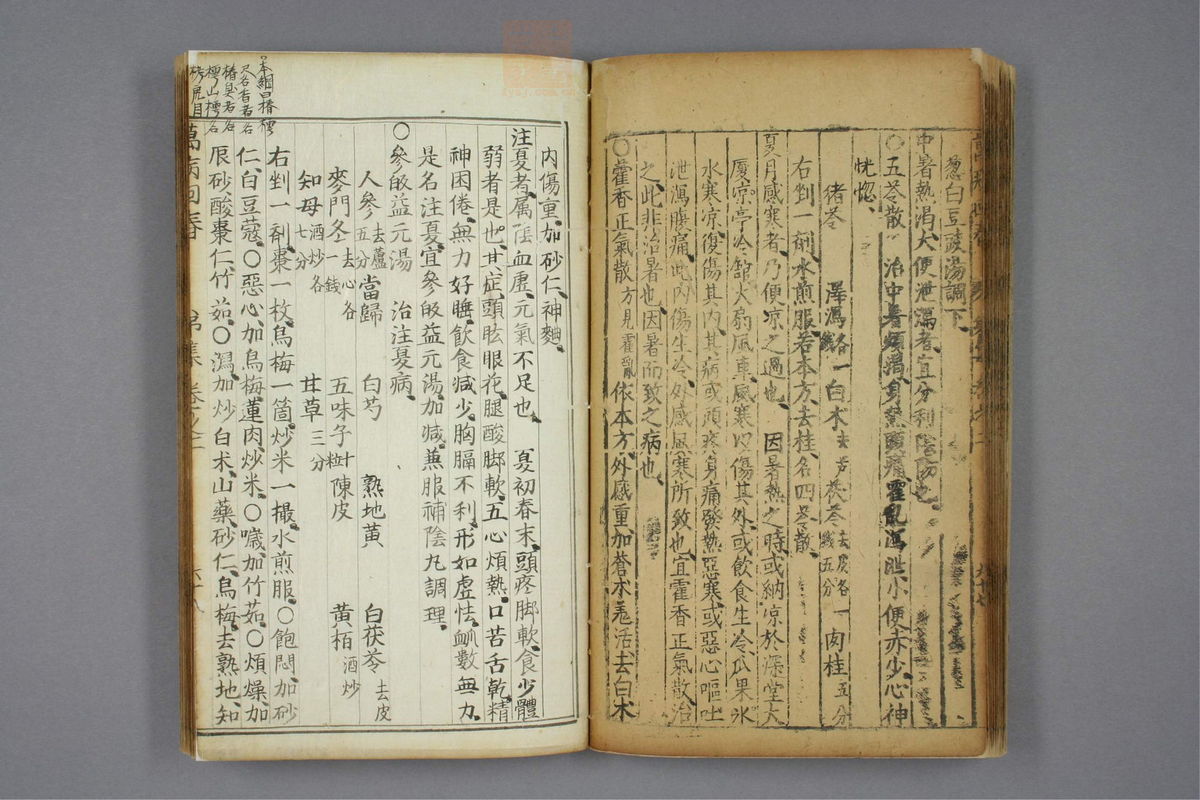 葱白豆豉湯調下
中暑熱渴大便泄瀉者宜分利陰陽也
○五苓散 治中暑煩渴身熱頭痛霍乱瀉泄小便赤少心神
恍惚
猪苓 澤瀉各一錢 白朮去芦 茯苓去皮各一錢五分 肉桂五分
右剉一劑水煎服若本方去桂名四苓散
夏月感寒者乃便凉之過也 因暑熱之時或納凉於深堂大
厦凉亭冷舘大扇風車風寒以傷其外或飲食生冷瓜果氷
水寒凉復傷其内其病或頭疼身痛發熱惡寒或惡心嘔吐
泄瀉腹痛此内傷生冷外感風寒所致也宜霍香正氣散治
之此非治暑也因暑而致之病也
○藿香正氣散方見霍亂 依本方外感重加蒼朮羗活去白朮
内傷重加砂仁神麯
注夏者属陰血虚元氣不足也 夏初春末頭疼脚軟食少體
弱者是也其症頭眩眼花腿酸脚軟五心煩熱口苦舌乾精
神困倦無力好睡飲食减少胸膈不利形如虚怯脉数無力
是名注夏宜參皈益元湯加减兼服補陰丸調理
○參皈益元湯 治注夏病
人參去蘆五分 當歸 白芍 熟地黄 白茯苓去皮
麥門冬去心各一錢 五味子十粒 陳皮 黄栢酒炒
知母酒炒各七分 甘草三分
右剉一劑棗一枚烏梅一箇炒米一撮水煎服○飽悶加砂
仁白豆蔻○惡心加烏梅蓮肉炒米○噦加竹茹○煩燥加
辰砂酸棗仁竹茹○瀉加炒白朮山藥砂仁烏梅去熟地知
萬病回春
本綱曰椿樗
椿臭者名
樗山樗名